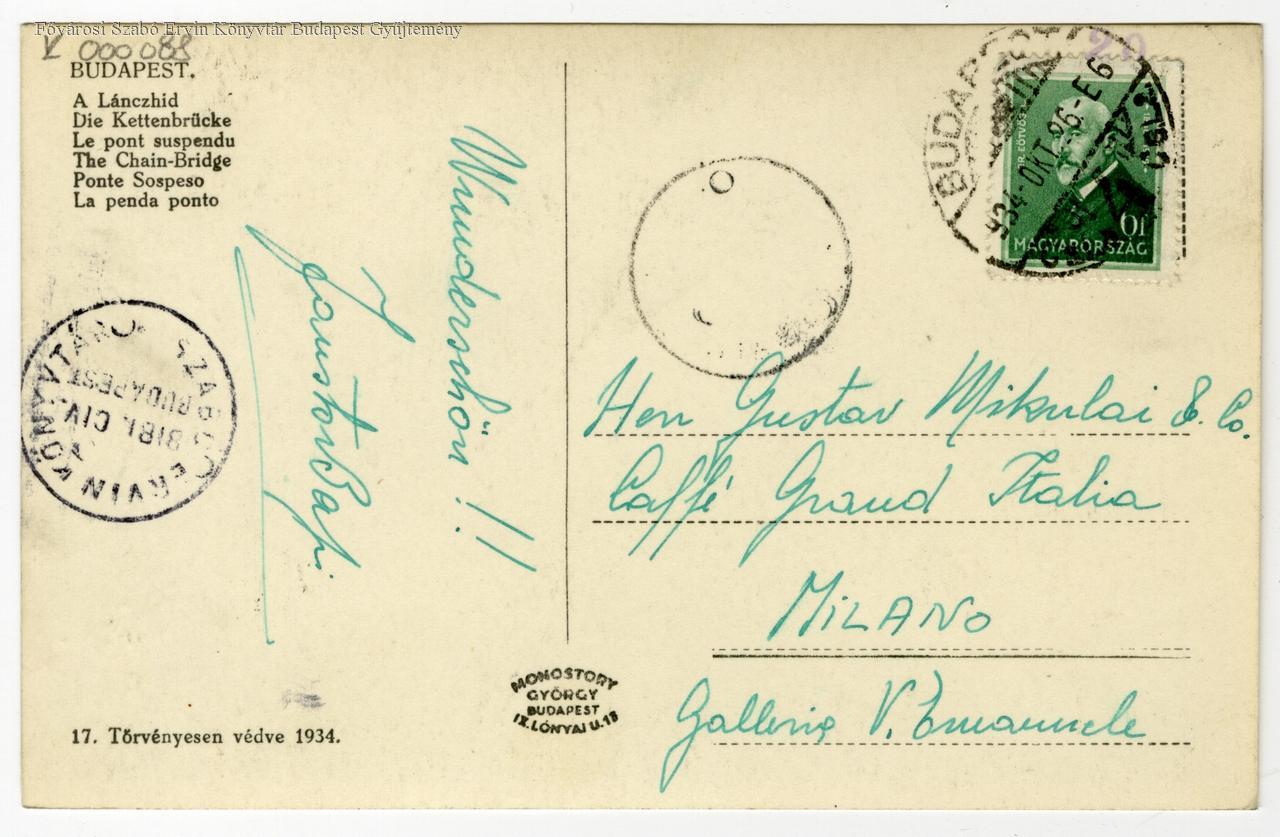 Fővárosi Szabó Ervin Könyvtár Budapest Gyűjtemény
V 000 088
BUDAPEST.
A Lánczhid
Die Kettenbrücke
Le pont suspendu
The Chain-Bridge
Ponte Sospeso
La penda ponto
Wunderschön!!
SZABÓ ERVIN KÖNYVTÁR
BIBL. CIV.
BUDAPEST
17. Törvényesen védve 1934.
MONOSTORY
GYÖRGY
BUDAPEST
IX. LÓNYAI U. 18
20
BUDAPEST
934 OKT 26
EÖTVÖS
10
MAGYARORSZÁG
Herr Gustav Mikulai & Co.
Caffé Grand Italia
MILANO
Galleria V. Emanuele